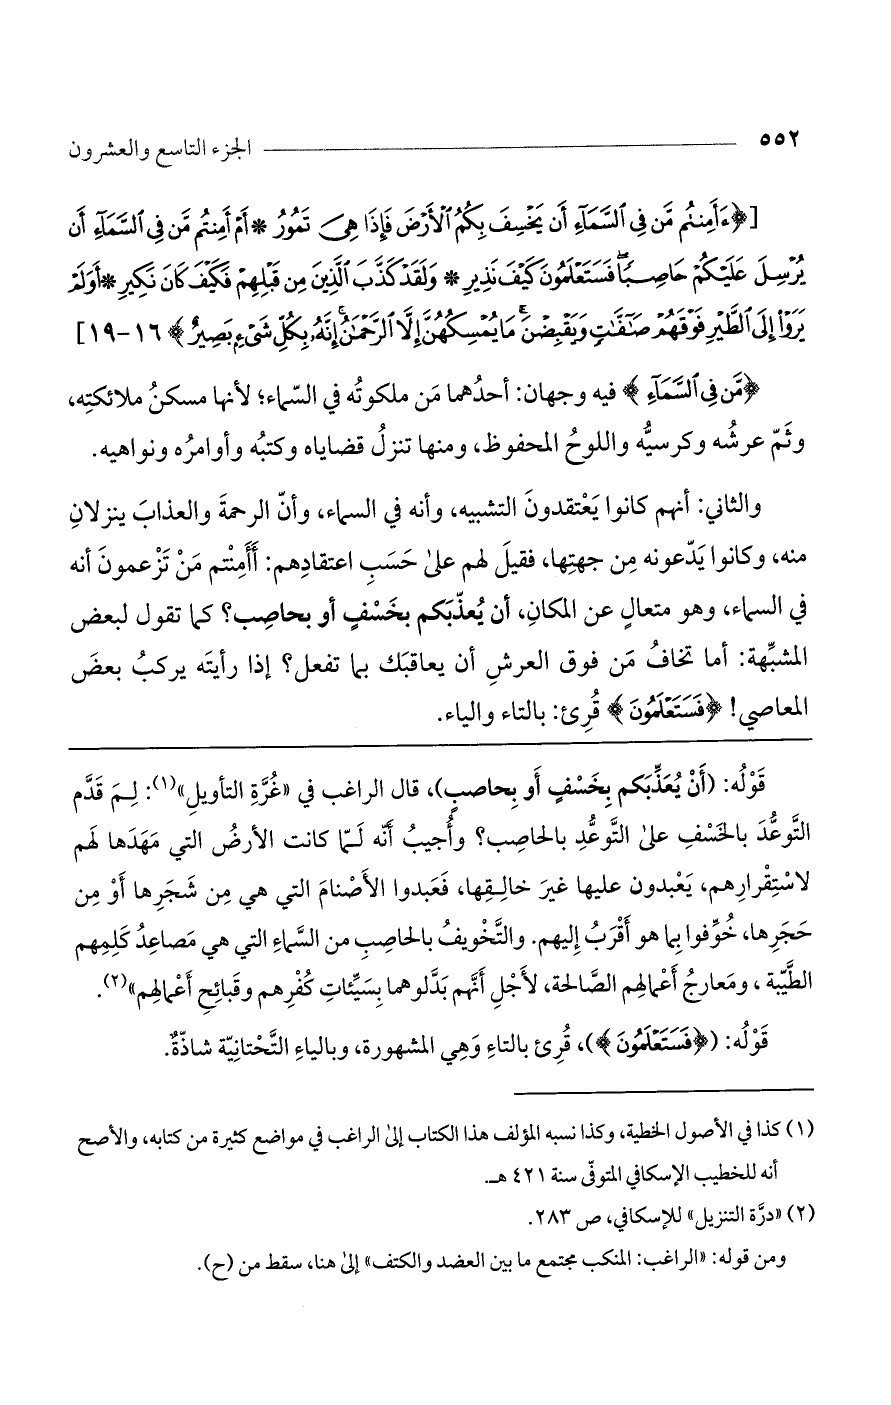 ٥٥٢ ــــــــــــــــــــ الجزء التاسع والعشرون
[﴿ءَأَمِنتُم مَّن فِي ٱلسَّمَآءِ أَن يَخْسِفَ بِكُمُ ٱلْأَرْضَ فَإِذَا هِيَ تَمُورُ * أَمْ أَمِنتُم مَّن فِي ٱلسَّمَآءِ أَن
يُرْسِلَ عَلَيْكُمْ حَاصِبًا ۖ فَسَتَعْلَمُونَ كَيْفَ نَذِيرِ * وَلَقَدْ كَذَّبَ ٱلَّذِينَ مِن قَبْلِهِمْ فَكَيْفَ كَانَ نَكِيرِ * أَوَلَمْ
يَرَوْا۟ إِلَى ٱلطَّيْرِ فَوْقَهُمْ صَـٰٓفَّـٰتٍ وَيَقْبِضْنَ ۚ مَا يُمْسِكُهُنَّ إِلَّا ٱلرَّحْمَـٰنُ ۚ إِنَّهُۥ بِكُلِّ شَىْءٍۭ بَصِيرٌ﴾ ١٦-١٩]
﴿مَّن فِي ٱلسَّمَآءِ﴾ فيه وجهان: أحدُهما مَن ملكوتُه في السّماء؛ لأنها مسكنُ ملائكتِه،
وثَمّ عرشُه وكرسيُّه واللوحُ المحفوظ، ومنها تنزلُ قضاياه وكتبُه وأوامرُه ونواهيه.
والثاني: أنهم كانوا يَعْتقدونَ التشبيه، وأنه في السماء، وأنّ الرحمةَ والعذابَ ينزلانِ
منه، وكانوا يَدّعونه مِن جهتِها، فقيلَ لهم علىٰ حَسَبِ اعتقادِهم: أَأَمِنْتم مَنْ تَزْعمونَ أنه
في السماء، وهو متعالٍ عن المكانِ، أن يُعذّبَكم بخَسْفٍ أو بحاصِب؟ كما تقول لبعض
المشبِّهة: أما تخافُ مَن فوق العرشِ أن يعاقبَك بما تفعل؟ إذا رأيتَه يركبُ بعضَ
المعاصي! ﴿فَسَتَعْلَمُونَ﴾ قُرِئ: بالتاء والياء.
قَوْلُه: (أَنْ يُعَذِّبَكم بِخَسْفٍ أو بِحاصبٍ)، قال الراغب في «غُرَّةِ التأويلِ»(١): لِمَ قَدَّم
التَّوعُّدَ بالخَسْفِ علىٰ التَّوعُّدِ بالحاصِب؟ وأُجيبُ أنّه لَـمّا كانت الأرضُ التي مَهَدَها لهم
لاسْتِقْرارِهم، يَعْبدون عليها غيرَ خالِـقِها، فَعَبدوا الأصْنامَ التي هي مِن شَجَرِها أوْ مِن
حَجَرِها، خُوِّفوا بِما هو أقْرَبُ إليهم. والتَّخْويفُ بالحاصِبِ من السَّماءِ التي هي مَصاعِدُ كَلِمِهم
الطيِّبة، ومَعارجُ أعْمالِهم الصَّالحة، لأجْلِ أنَّهم بَدَّلوهما بِسَيِّئاتِ كُفْرِهم وقَبائِحِ أعْمالِهم»(٢).
قَوْلُه: (﴿فَسَتَعْلَمُونَ﴾)، قُرِئ بالتاءِ وَهِي المشهورة، وبالياءِ التَّحْتانيّة شاذّةٌ.
(١) كذا في الأصول الخطية، وكذا نسبه المؤلف هذا الكتاب إلىٰ الراغب في مواضع كثيرة من كتابه، والأصح
أنه للخطيب الإسكافي المتوفّى سنة ٤٢١ هـ.
(٢) «درَّة التنزيل» للإسكافي، ص ٢٨٣.
ومن قوله: «الراغب: المنكب مجتمع ما بين العضد والكتف» إلىٰ هنا، سقط من (ح).